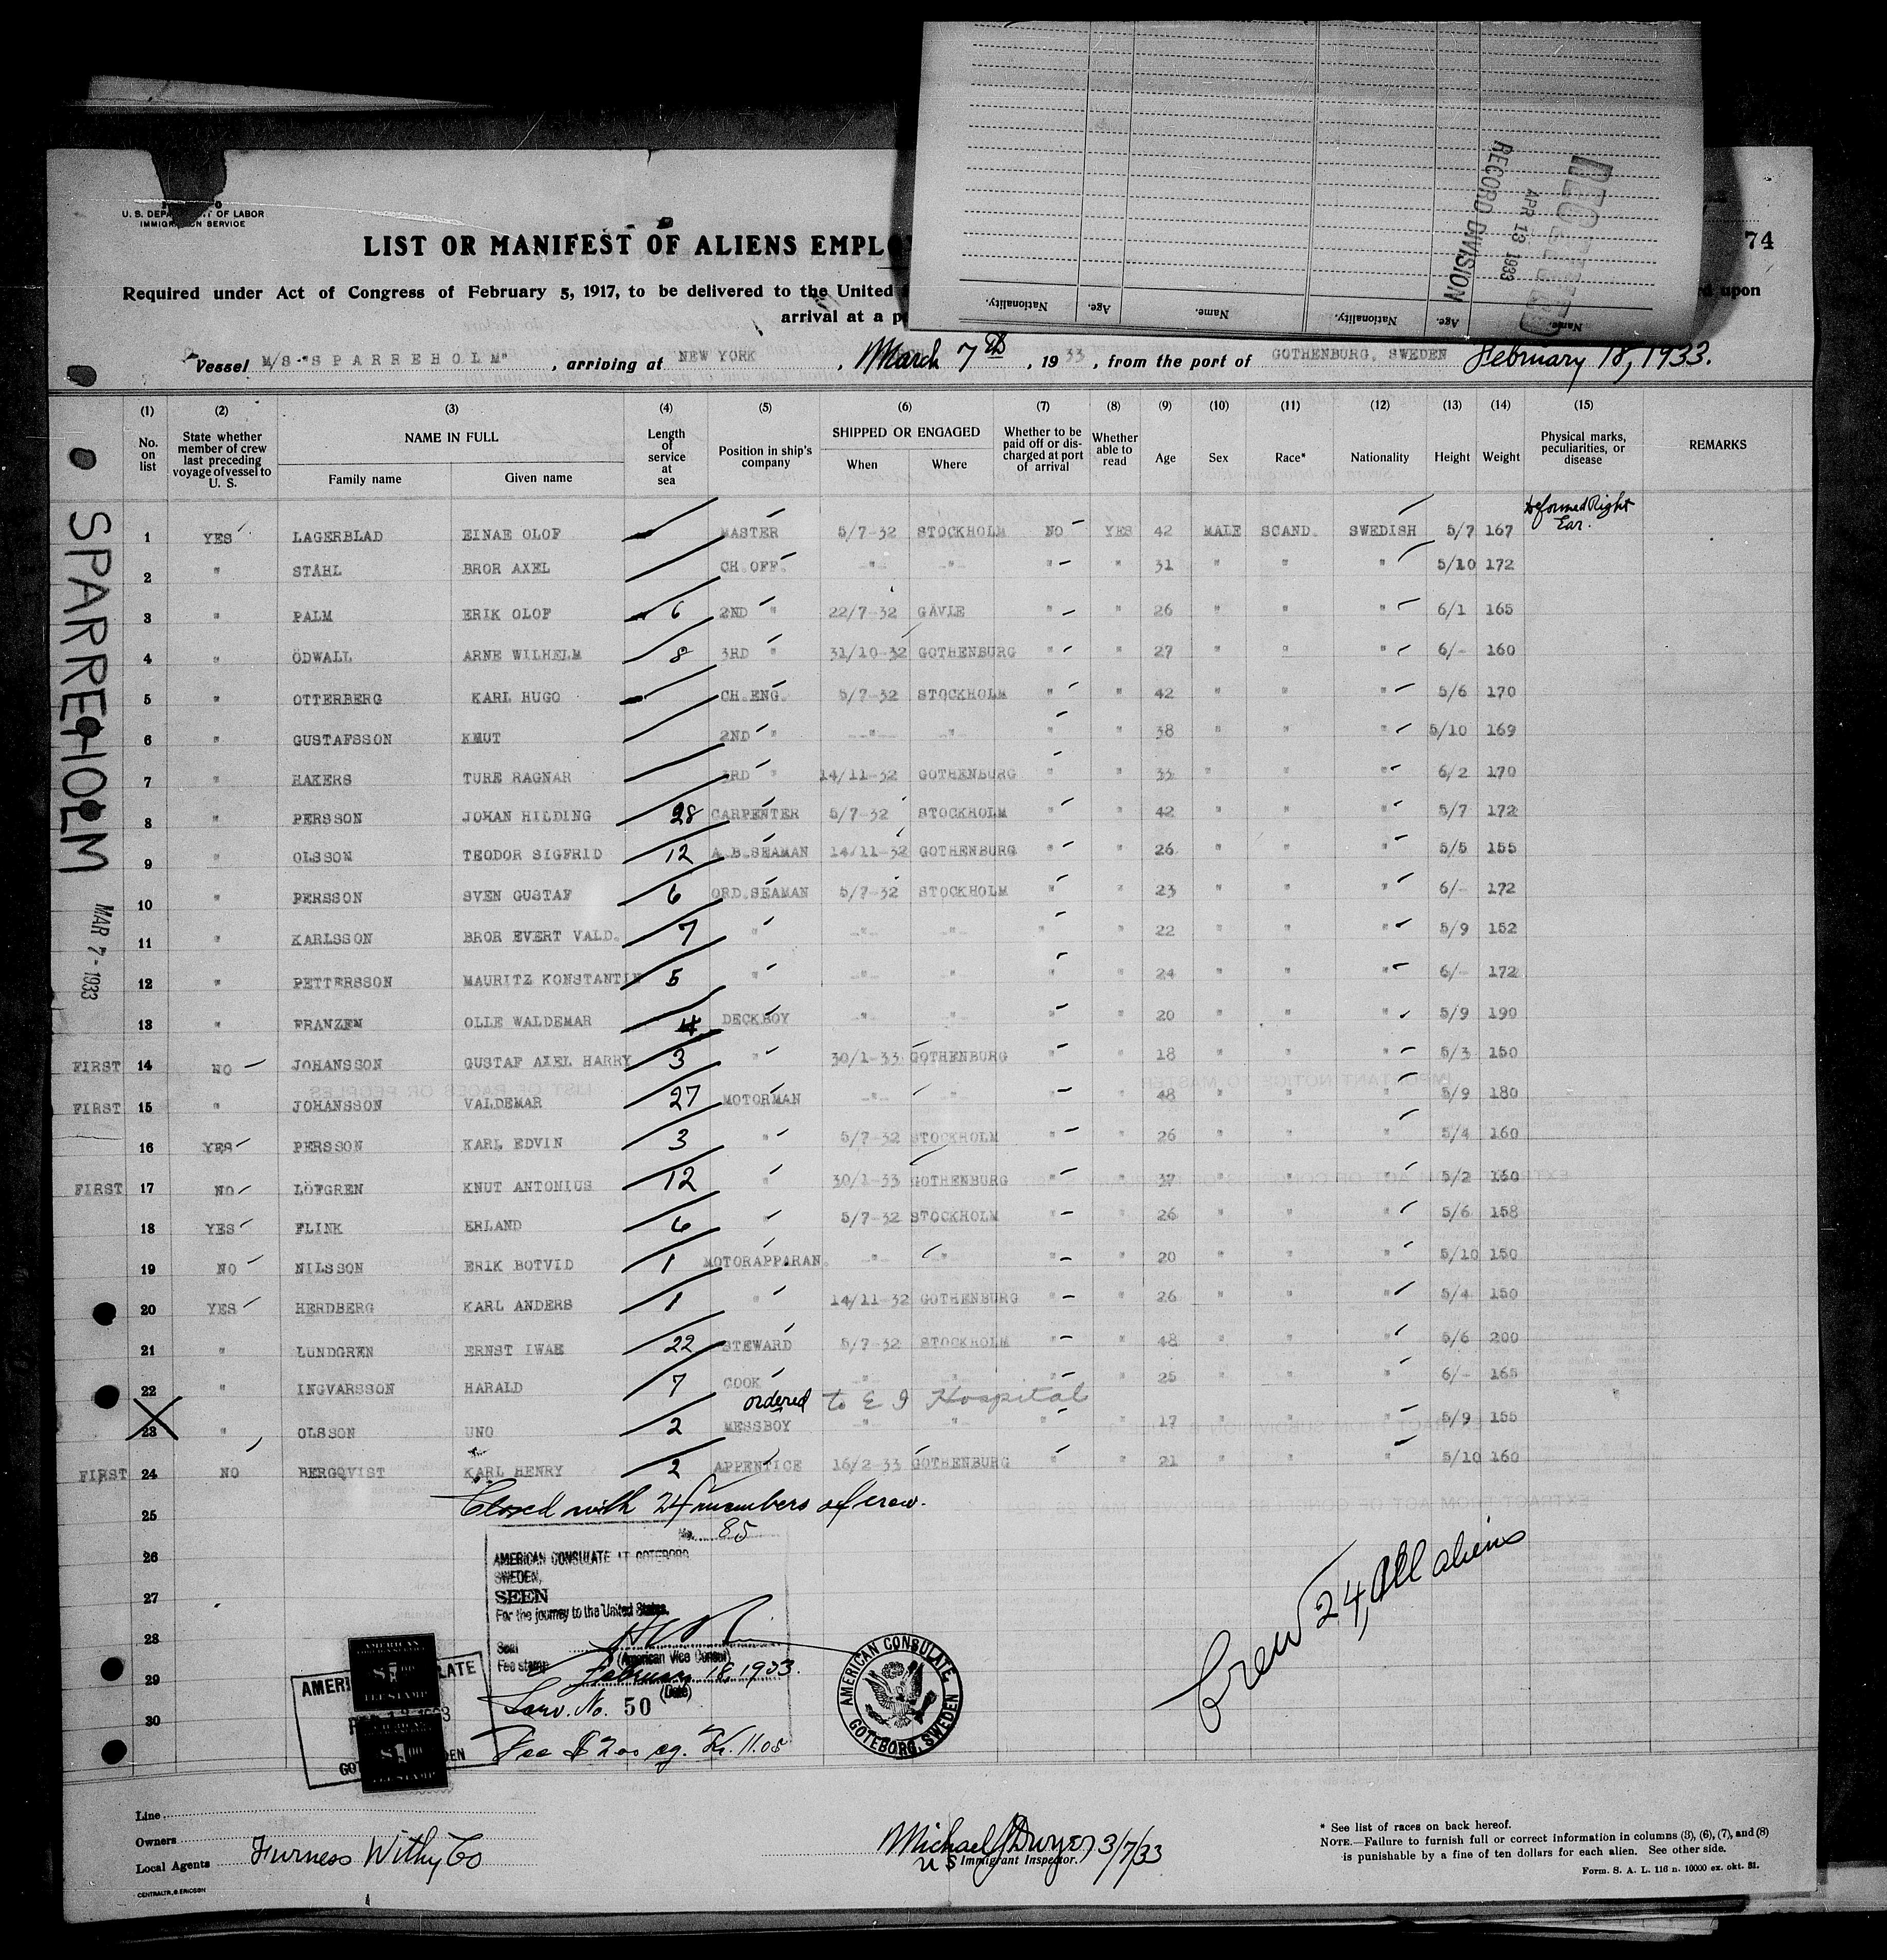 Name. Age. Nationality. Name. Age. Nationality.
RECORD DIVISION
APR 13 1933
U. S. DEPARTMENT OF LABOR
IMMIGRATION SERVICE
LIST OR MANIFEST OF ALIENS EMPLO
74
Required under Act of Congress of February 5, 1917, to be delivered to the United
upon
arrival at a p
Vessel M/S "SPARREHOLM", arriving at NEW YORK, March 7th, 1933, from the port of GOTHENBURG, SWEDEN February 18, 1933.
(1) (2) (3) (4) (5) (6) (7) (8) (9) (10) (11) (12) (13) (14) (15)
No. on list
State whether member of crew last preceding voyage of vessel to U. S.
NAME IN FULL
Family name
Given name
Length of service at sea
Position in ship's company
SHIPPED OR ENGAGED
When
Where
Whether to be paid off or discharged at port of arrival
Whether able to read
Age
Sex
Race*
Nationality
Height
Weight
Physical marks, peculiarities, or disease
REMARKS
SPARREHOLM
MAR 7 - 1933
1 YES LAGERBLAD EINAE OLOF MASTER 5/7-32 STOCKHOLM NO YES 42 MALE SCAND. SWEDISH 5/7 167 Deformed Right Ear.
2 " STÅHL BROR AXEL CH.OFF. -"- -"- " " 31 " " " 5/10 172
3 " PALM ERIK OLOF 6 2ND " 22/7-32 GÄVLE " " 26 " " " 6/1 165
4 " ÖDWALL ARNE WILHELM 8 3RD " 31/10-32 GOTHENBURG " " 27 " " " 6/- 160
5 " OTTERBERG KARL HUGO CH.ENG. 5/7-32 STOCKHOLM " " 42 " " " 5/6 170
6 " GUSTAFSSON KNUT 2ND " -"- -"- " " 38 " " " 5/10 169
7 " HAKERS TURE RAGNAR 3RD " 14/11-32 GOTHENBURG " " 33 " " " 6/2 170
8 " PERSSON JOHAN HILDING 28 CARPENTER 5/7-32 STOCKHOLM " " 42 " " " 5/7 172
9 " OLSSON TEODOR SIGFRID 12 A.B.SEAMAN 14/11-32 GOTHENBURG " " 26 " " " 5/5 155
10 " PERSSON SVEN GUSTAF 6 ORD.SEAMAN 5/7-32 STOCKHOLM " " 23 " " " 6/- 172
11 " KARLSSON BROR EVERT VALD. 7 " -"- -"- " " 22 " " " 5/9 152
12 " PETTERSSON MAURITZ KONSTANTIN 5 " -"- -"- " " 24 " " " 6/- 172
13 " FRANZEN OLLE WALDEMAR 4 DECKBOY -"- -"- " " 20 " " " 5/9 190
FIRST 14 NO JOHANSSON GUSTAF AXEL HARRY 3 " 30/1-33 GOTHENBURG " " 18 " " " 5/3 150
FIRST 15 " JOHANSSON VALDEMAR 27 MOTORMAN -"- " " " 48 " " " 5/9 180
16 YES PERSSON KARL EDVIN 3 " 5/7-32 STOCKHOLM " " 26 " " " 5/4 160
FIRST 17 NO LÖFGREN KNUT ANTONIUS 12 " 30/1-33 GOTHENBURG " " 37 " " " 5/2 160
18 YES FLINK ERLAND 6 " 5/7-32 STOCKHOLM " " 26 " " " 5/6 158
19 NO NILSSON ERIK BOTVID 1 MOTORAPPARAN. -"- -"- " " 20 " " " 5/10 150
20 YES HERDBERG KARL ANDERS 1 " 14/11-32 GOTHENBURG " " 26 " " " 5/4 150
21 " LUNDGREN ERNST IWAE 22 STEWARD 5/7-32 STOCKHOLM " " 48 " " " 5/6 200
22 " INGVARSSON HARALD 7 COOK -"- -"- " " 25 " " " 6/- 165
ordered to E I Hospital
23 " OLSSON UNO 2 MESSBOY -"- -"- " " 17 " " " 5/9 155
FIRST 24 NO BERGQVIST KARL HENRY 2 APPENTICE 16/2-33 GOTHENBURG " " 21 " " " 5/10 160
Closed with 24 members of crew.
25
No. 85
26
AMERICAN CONSULATE AT GOTEBORG
SWEDEN,
SEEN
27
For the journey to the United States.
28
Seal
(American Vice Consul)
Fee stamp
February 18, 1933.
(Date)
29
Serv. No. 50
30
Fee $2.00 eq. Kr. 11.05
AMERICAN CONSULATE GOTEBORG, SWEDEN
Crew 24, All aliens
Line
Owners
Local Agents Furness Withy Co
CENTRALTR, G. ERICSON
Michael J Dwyer 3/7/33
U S Immigrant Inspector.
* See list of races on back hereof.
NOTE.—Failure to furnish full or correct information in columns (3), (6), (7), and (8)
is punishable by a fine of ten dollars for each alien. See other side.
Form. S. A. L. 116 n. 10000 ex. okt. 31.